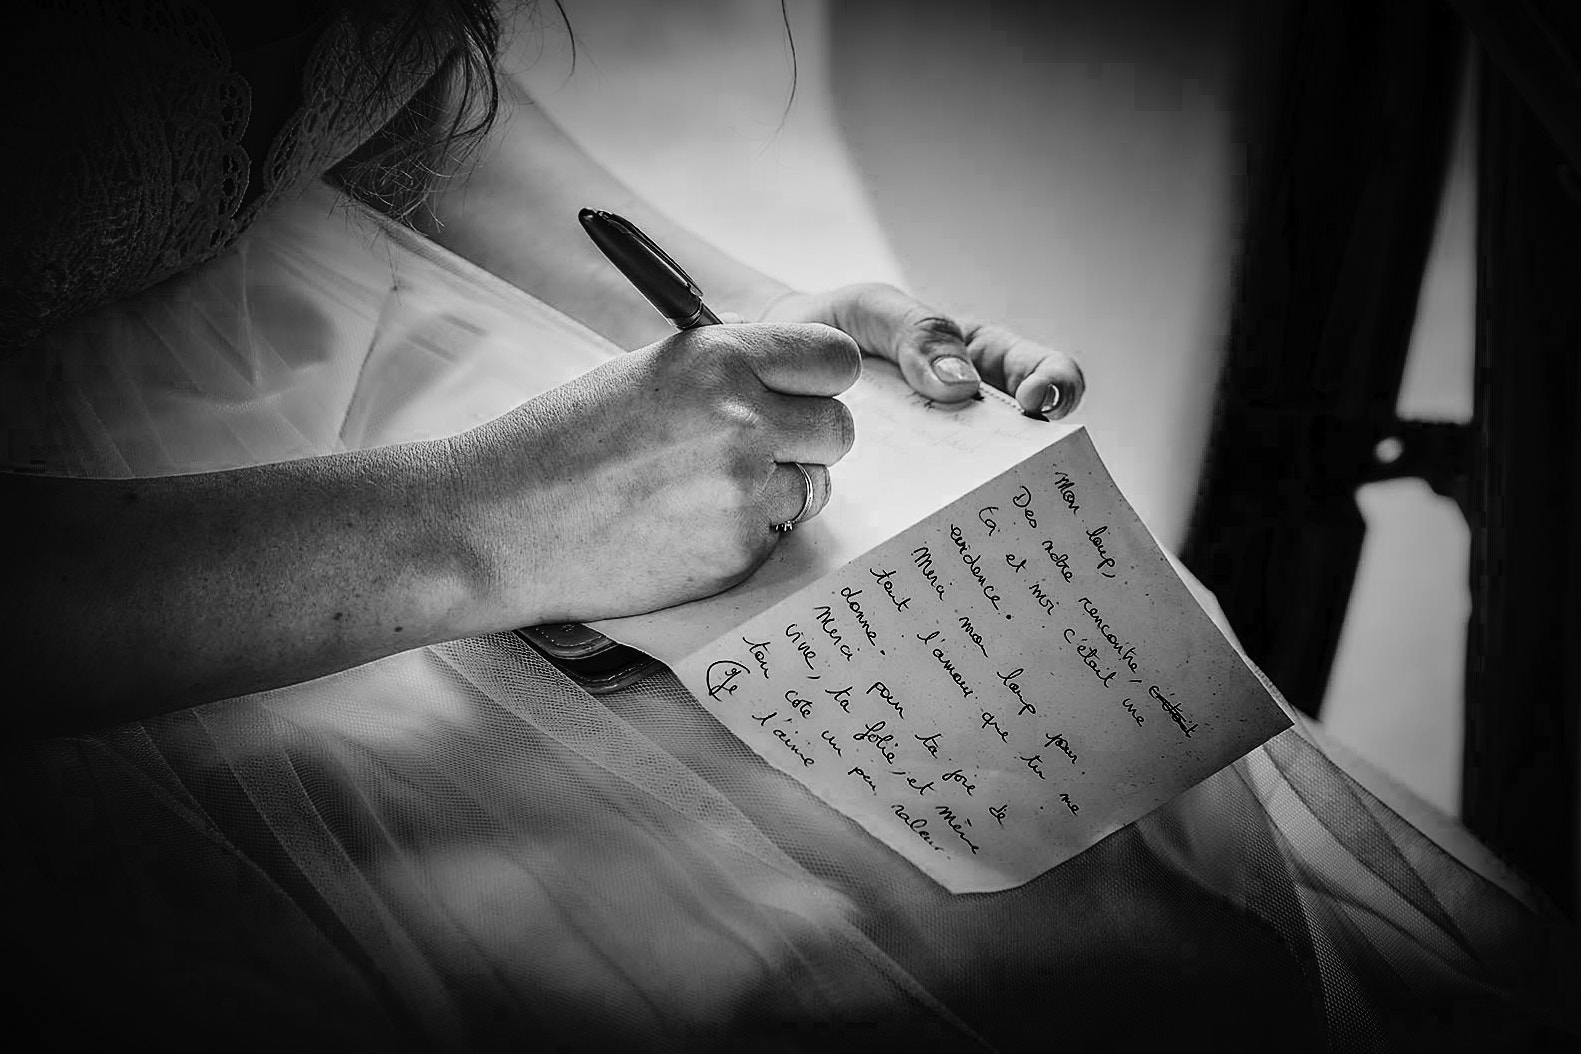 Mon loup,
Des notre rencontre, c'était
toi et moi c'était une
evidence.
Merci mon loup pour
tout l'amour que tu me
donne.
Merci pour ta joie de
vivre, ta folie, et même
ton coté un peu raleur.
Je t'aime